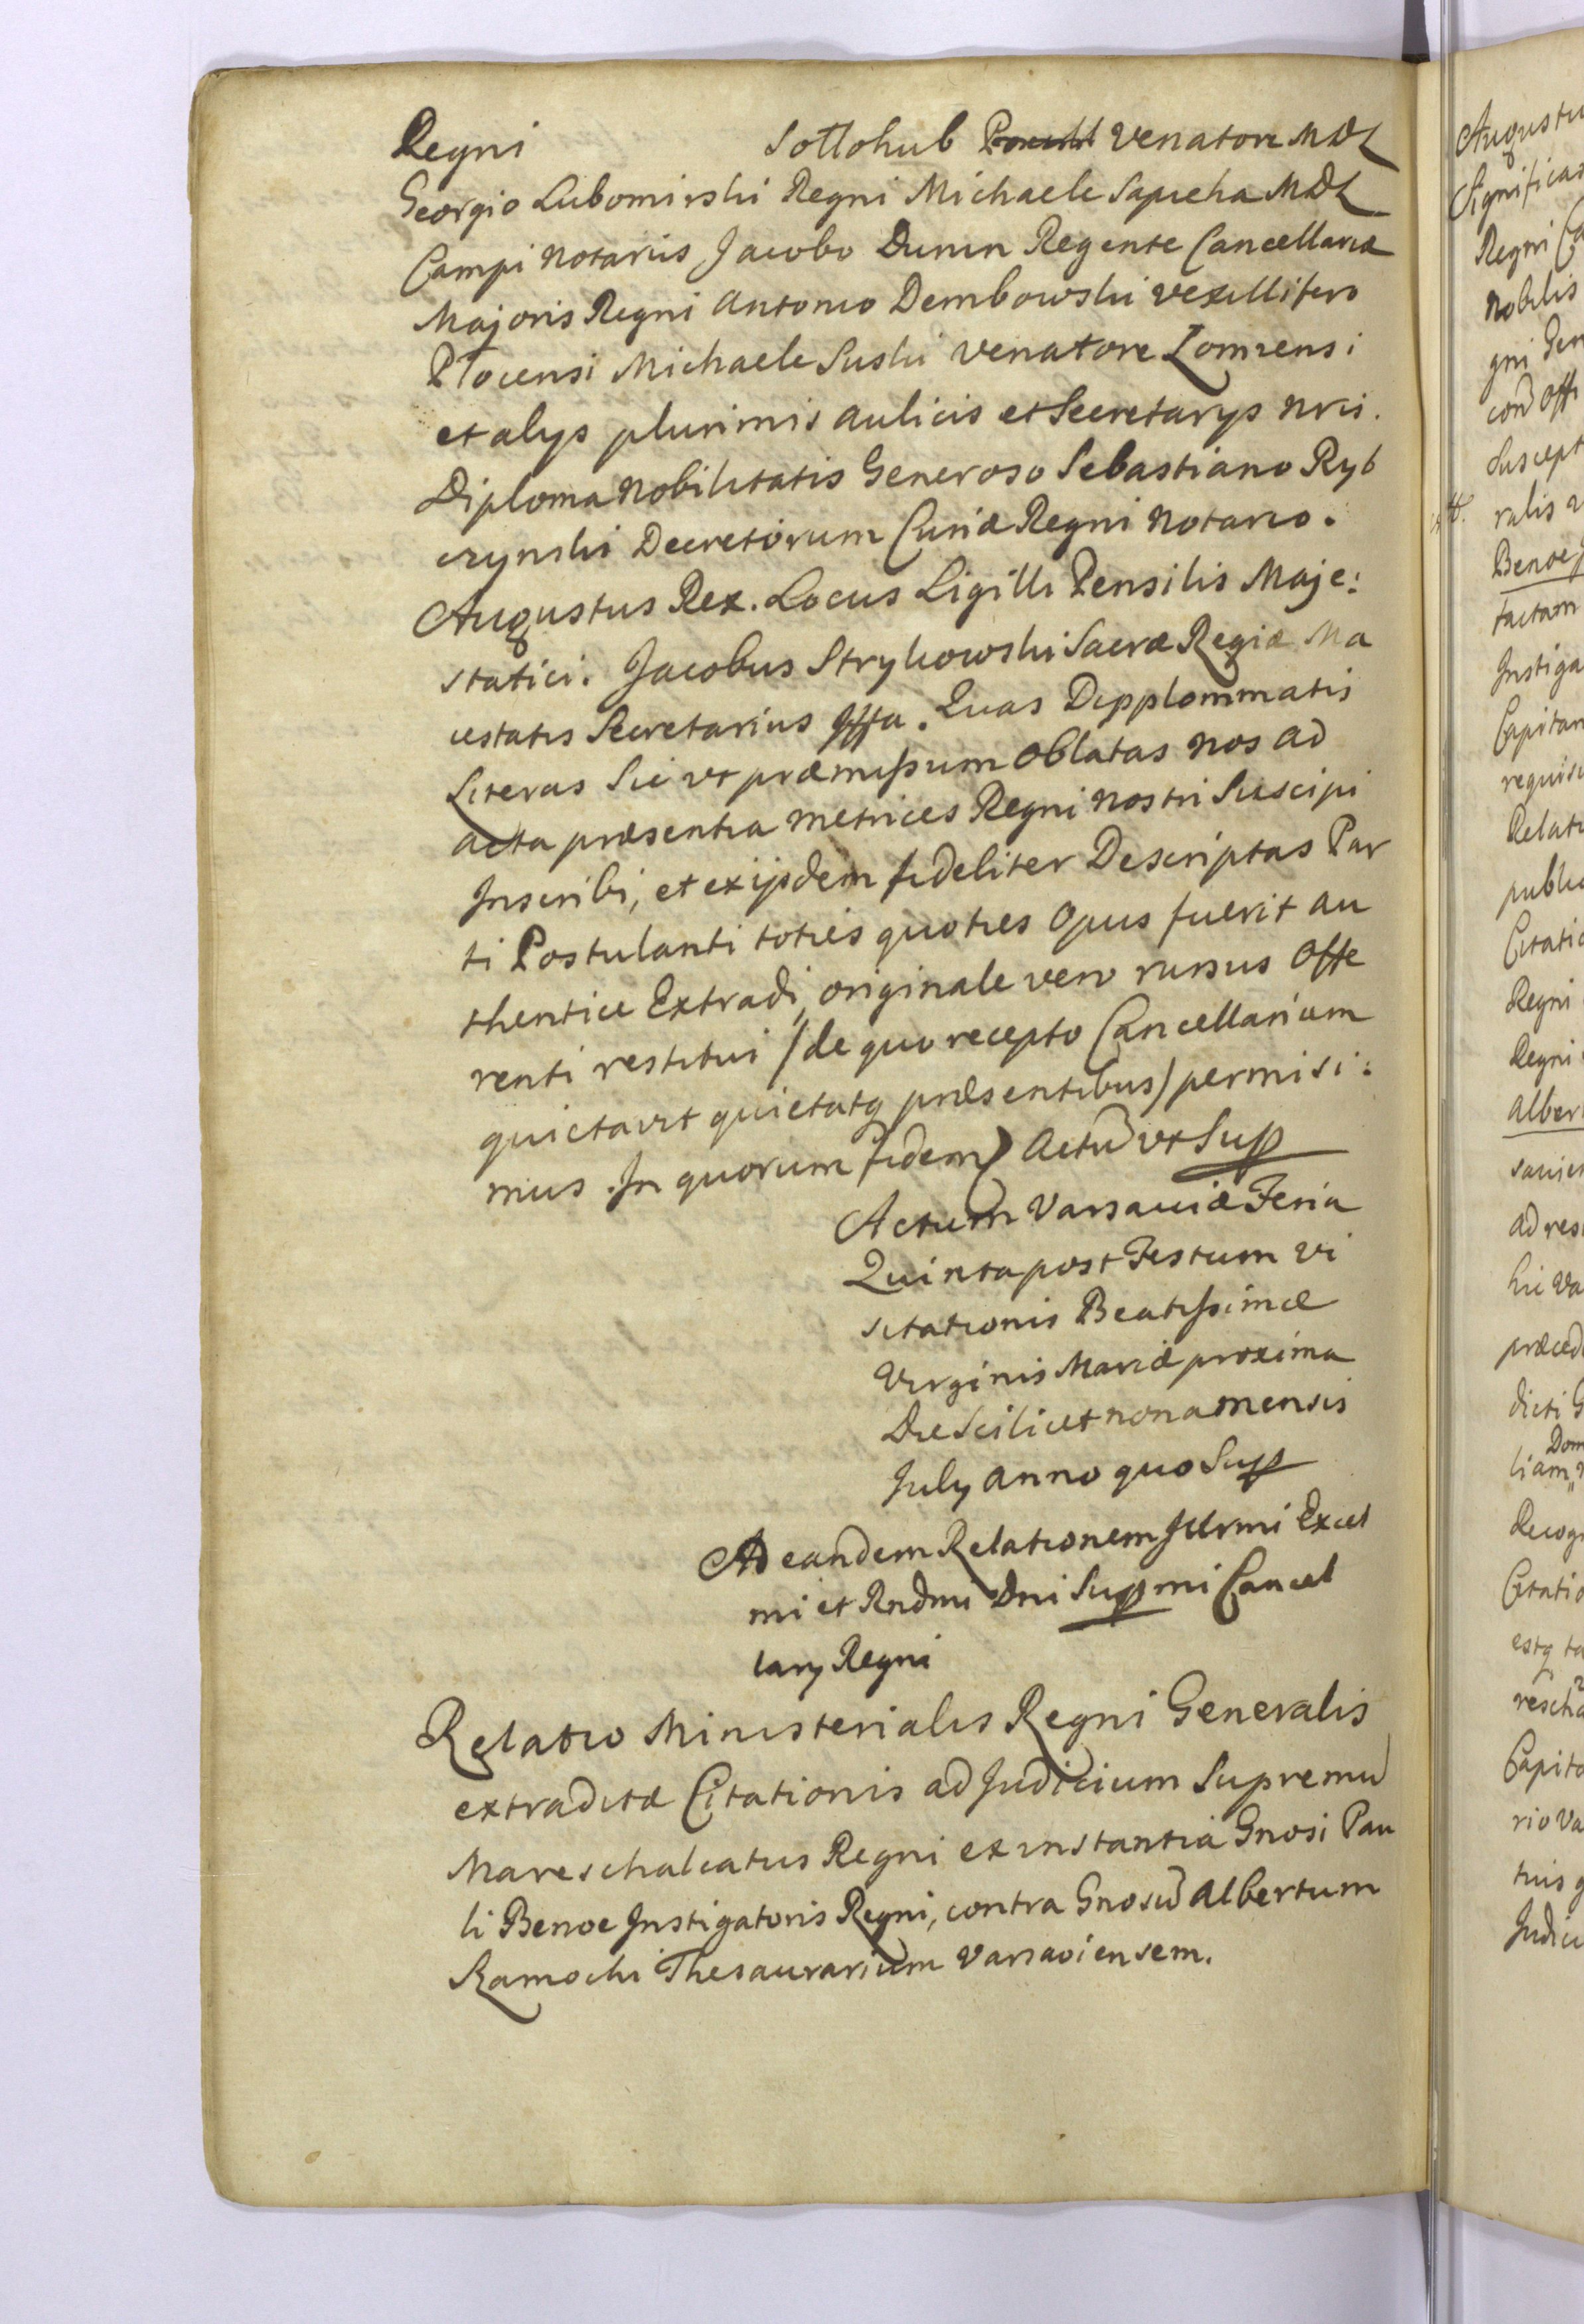 Regni Sottohub Venatore MDL
Georgio Lubomirski Regni Michaele Sapieha MDL
Campi Notariis Jacobo Dunin Regente Cancellariæ
Majoris Regni Antonio Dembowski Vexillifero
Plocensi Michaele Suski Venatore Lomzensi
et alys plurimis Aulicis et Secretarys nris.
Diploma Nobilitatis Generoso Sebastiano Ryb
czynski Decretorum Curiæ Regni Notario.
Augustus Rex. Locus Sigilli Pensilis Maje:
statici. Jacobus Strykowski Sacræ Regiæ Ma
iestatis Secretarius
Quas Dipplommatis
Literas Sic ut præmissum Oblatas nos ad
acta præsentia metrices Regni nostri Suscipi
Inscribi, et exijsdem fideliter Descriptas Par
ti Postulanti toties quoties Opus fuerit au
thentice Extradi, originale vero rursus Offe
renti restitui /de quo recepto Cancellariam
quietavit quietatq præsentibus/ permisi:
mus. In quorum fidem) Actū ut Sup
Actum Varsaviæ Feria
Quinta post Festum Vi
sitationis Beatissimæ
Virginis Mariæ proxima
Die Scilicet nona mensis
July anno quo Sup
Ad eandem Relationem Illrmi Excel
mi et Rndmi Dni Suppmi Cancel
lary Regni
Relatio Ministerialis Regni Generalis
extraditæ Citationis ad Judicium Supremū
Mareschalcatus Regni ex instantia Gnosi Pau
li Benoe Instigatoris Regni, contra Gnosū Albertum
Ramocki Thesaurarium Varsaviensem.
Augustu
Significa
Regni
Nobilis
gni Gen
Suscept
ralis
Benoe
factam
Instiga
Capitan
requisi
Relati
public
Citatio
Regni
Regni
Alber
ad res
hic Va
præced
dicti G
Dom
liam
Recog
Citatio
estq ta
Capita
rio Va
Judici